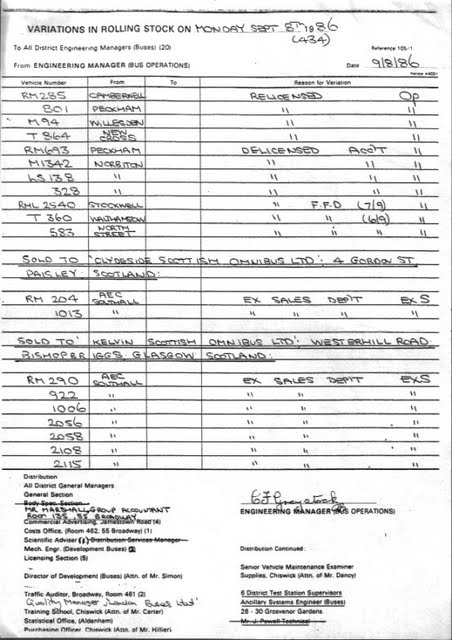 VARIATIONS IN ROLLING STOCK ON MONDAY SEPT 8T 1986
(434)
To All District Engineering Managers (Buses) (20)
Reference 105/1
From ENGINEERING MANAGER (BUS OPERATIONS)
Date 9/8/86
Vehicle Number From To Reason for Variation
RM285 CAMBERWELL RELICENSED Op
801 PECKHAM " "
M94 WILLESDEN " "
T864 NEW CROSS " "
RM693 PECKHAM DELICENSED ACC'T "
M1342 NORBITON " " "
LS138 " " " "
328 " " " "
RML 2540 STOCKWELL " F.F.D (7/9) "
T 360 WALTHAMSTOW " " (6/9) "
583 NORTH STREET " " " "
SOLD TO 'CLYDESIDE SCOTTISH OMNIBUS LTD': 4 GORDON ST
PAISLEY: SCOTLAND:
RM 204 AEC SOUTHALL EX SALES DEPT EXS
1013 " " " "
SOLD TO 'KELVIN SCOTTISH OMNIBUS LTD': WESTERHILL ROAD:
BISHOPBRIGGS, GLASGOW SCOTLAND:
RM290 AEC SOUTHALL EX SALES DEPT EXS
922 " " " "
1006 " " " "
2056 " " " "
2058 " " " "
2108 " " " "
2115 " " " "
Distribution
All District General Managers
General Section
Body Spec. Section
MR MARSHALL GROUP ACCOUNTANT
ROOM 135, 55 BROADWAY
Commercial Advertising, Jamestown Road (4)
Costs Office, (Room 462, 55 Broadway) (1)
Scientific Adviser (1) Distribution Services Manager
Mech. Engr. (Development Buses) (2)
Licensing Section (5)
Director of Development (Buses) (Attn. of Mr. Simon)
Traffic Auditor, Broadway, Room 461 (2)
Quality Manager London Buses Ltd
Training School, Chiswick (Attn. of Mr. Carter)
Statistical Office, (Aldenham)
Purchasing Officer, Chiswick (Attn. of Mr. Hillier)
ENGINEERING MANAGER (BUS OPERATIONS)
Distribution Continued:
Senior Vehicle Maintenance Examiner
Supplies, Chiswick (Attn. of Mr. Dancy)
6 District Test Station Supervisors
Ancillary Systems Engineer (Buses)
28 - 30 Grosvenor Gardens
Mr. J. Powell Technical